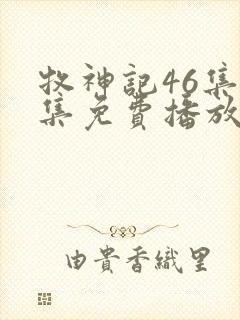 牧神記46集
集免費播放
由貴香織里